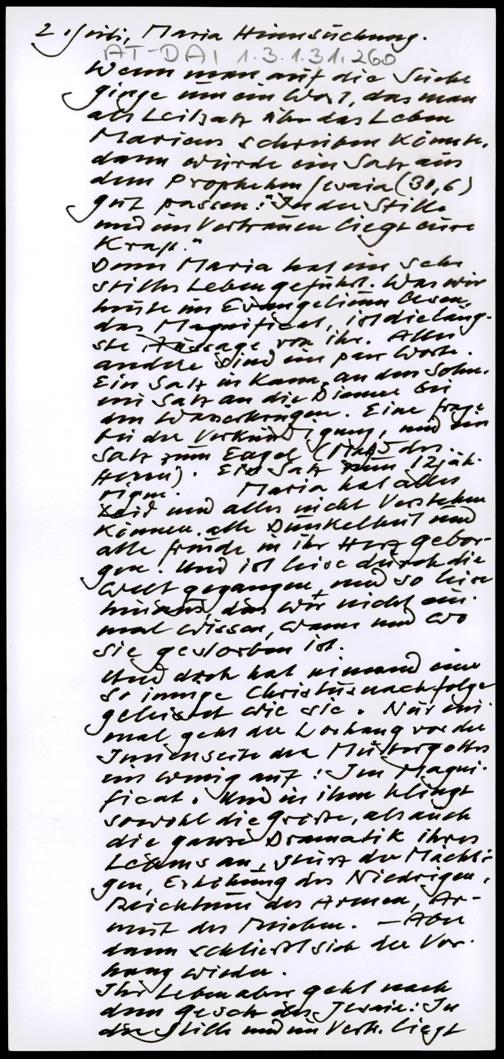 2. Juli, Maria Heimsuchung.
AT-DAI 1.3.1.31.260
Wenn man auf die Suche
ginge um ein Wort, das man
als Leitsatz über das Leben
Mariens schreiben könnte,
dann würde ein Satz aus
dem Propheten Jesaia (30,6)
gut passen: "In der Stille
und im Vertrauen liegt eure
Kraft."
Denn Maria hat ein sehr
stilles Leben geführt. Was wir
heute im Evangelium lesen,
das Magnifikat, ist die läng-
ste Aussage von ihr. Alles
andere sind ein paar Worte.
Ein Satz in Kana, an den Sohn,
ein Satz an die Diener bei
den Wasserkrügen. Eine Frage
bei der Verkündigung, und ein
Satz zum Engel (Magd des
Herrn). Ein Satz zum 12jäh-
rigen. Maria hat alles
Leid und alles nicht Verstehen
können, alle Dunkelheit und
alle Freude in ihr Herz gebor-
gen. Und ist leise durch die
Welt gegangen, und so leise
hinaus, das wir nicht ein-
mal wissen, wann und wo
sie gestorben ist.
Und doch hat niemand eine
so innige Christusnachfolge
geleistet wie sie. Nur ein-
mal geht der Vorhang vor der
Innenseite der Muttergottes
ein wenig auf: Im Magni-
ficat. Und in ihm klingt
sowohl die größte, als auch
die ganze Dramatik ihres
Lebens an, Sturz der Mächti-
gen, Erhöhung des Niedrigen,
Reichtum des Armen, Ar-
mut des Reichen. – Aber
dann schließt sich der Vor-
hang wieder.
Ihr Leben aber geht nach
dem Gesetz des Jesaia: In
der Stille und im Vertr. liegt